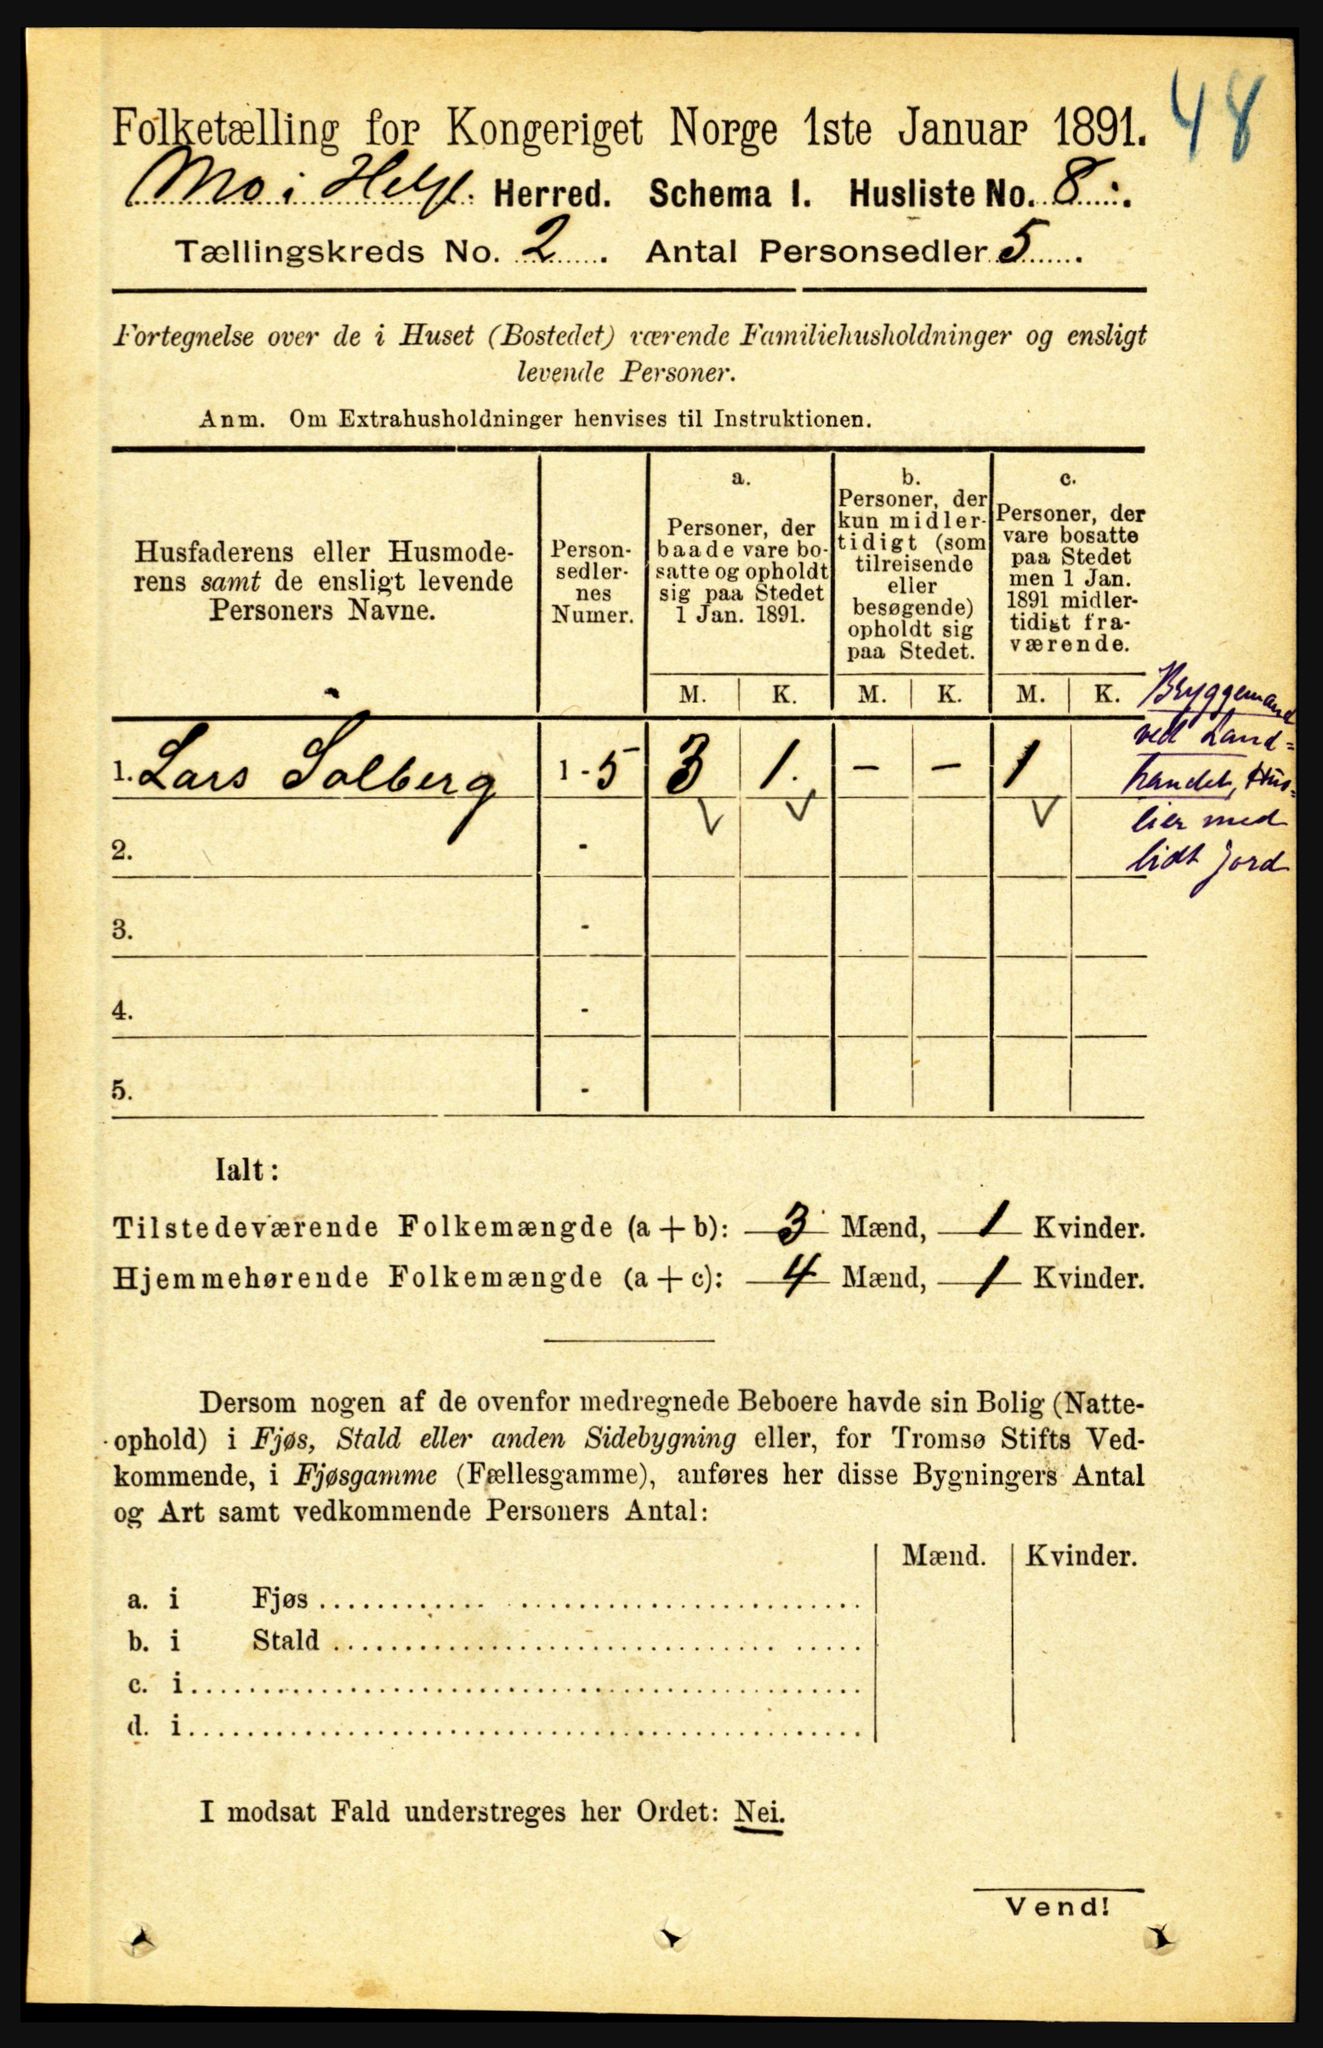 48
Folketælling for Kongeriget Norge 1ste Januar 1891.
Mo i Helgl. Herred. Schema I. Husliste No. 8.
Tællingskreds No. 2. Antal Personsedler 5.
Fortegnelse over de i Huset (Bostedet) værende Familiehusholdninger og ensligt
levende Personer.
Anm. Om Extrahusholdninger henvises til Instruktionen.
Husfaderens eller Husmode-
rens samt de ensligt levende
Personers Navne.
Person-
sedler-
nes
Numer.
a.
Personer, der
baade vare bo-
satte og opholdt
sig paa Stedet
1 Jan. 1891.
b.
Personer, der
kun midler-
tidigt (som
tilreisende
eller
besøgende)
opholdt sig
paa Stedet.
c.
Personer, der
vare bosatte
paa Stedet
men 1 Jan.
1891 midler-
tidigt fra-
værende.
M. K. M. K. M. K.
1. Lars Solberg 1 - 5 3 1. - - 1
Bryggemand
ved Land-
handel, Hus-
lier med
lidt Jord
2. -
3. -
4. -
5. -
Ialt:
Tilstedeværende Folkemængde (a + b): 3 Mænd, 1 Kvinder.
Hjemmehørende Folkemængde (a + c): 4 Mænd, 1 Kvinder.
Dersom nogen af de ovenfor medregnede Beboere havde sin Bolig (Natte-
ophold) i Fjøs, Stald eller anden Sidebygning eller, for Tromsø Stifts Ved-
kommende, i Fjøsgamme (Fællesgamme), anføres her disse Bygningers Antal
og Art samt vedkommende Personers Antal:
Mænd. Kvinder.
a. i Fjøs
b. i Stald
c. i
d. i
I modsat Fald understreges her Ordet: Nei.
Vend!